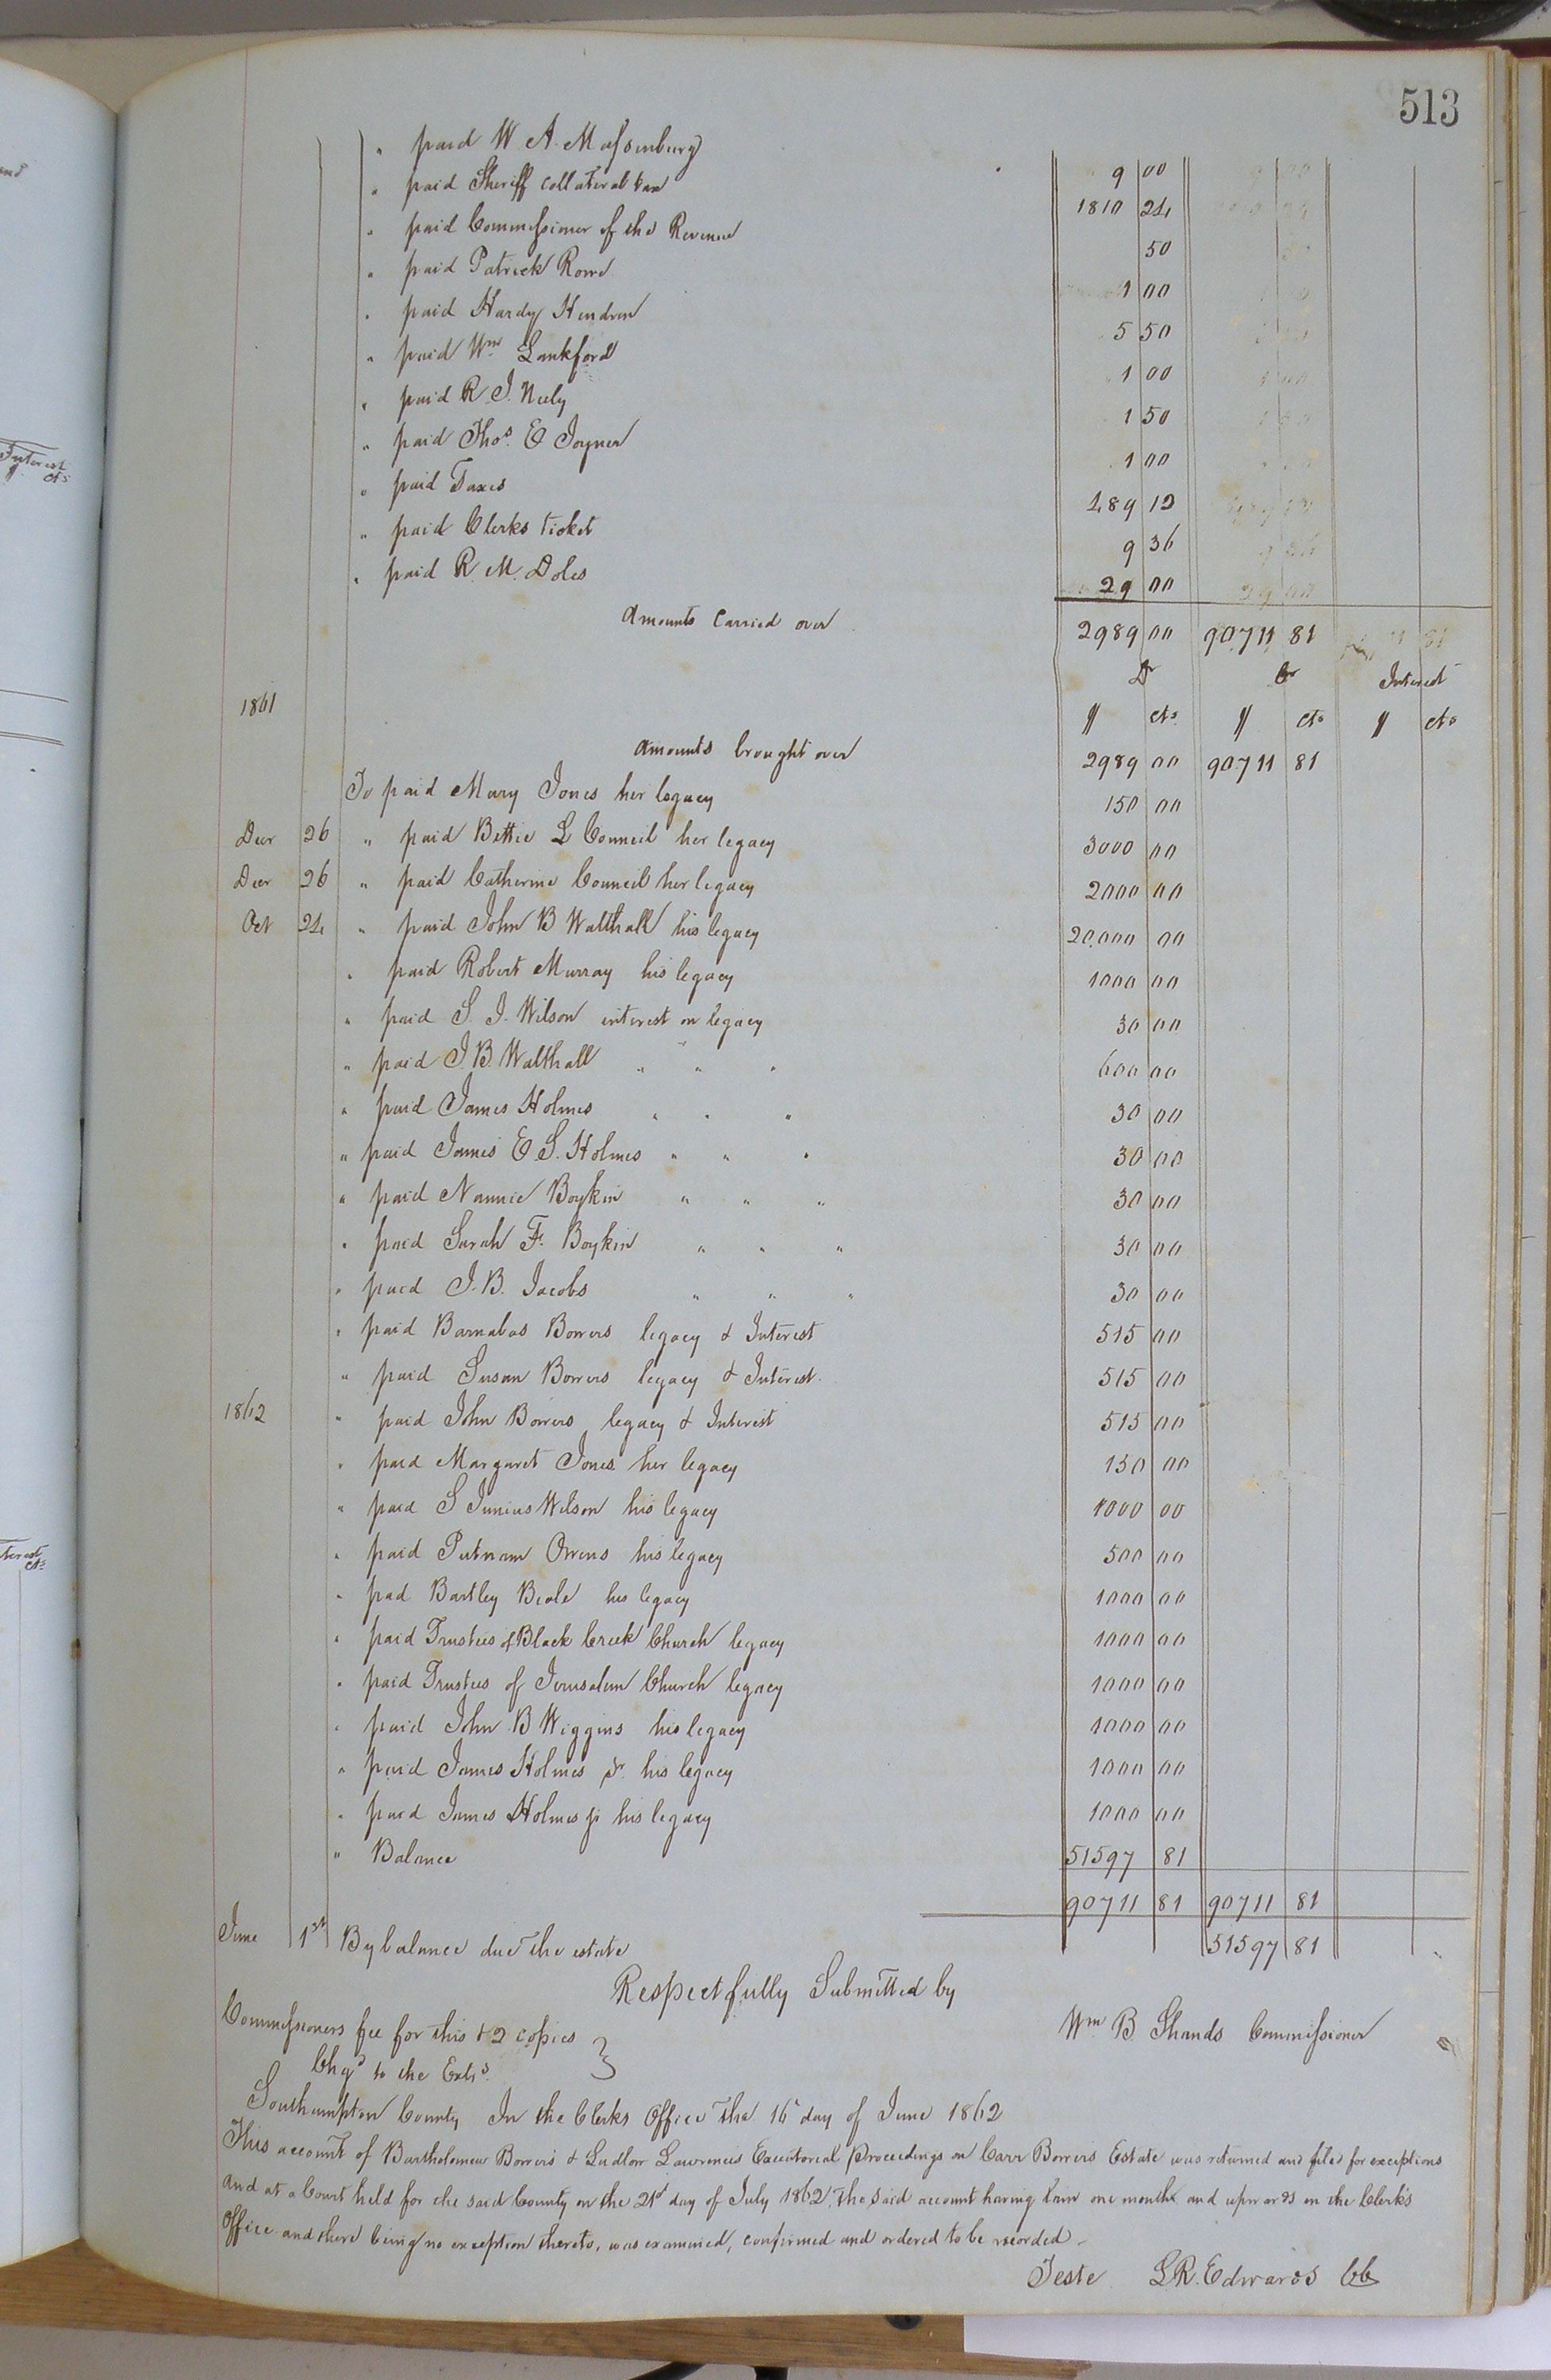 513
" paid W A. Massenburg 9 00
" paid Sheriff collateral tax 1810 24
" paid Commissioner of the Revenue 50
" paid Patrick Rowe 1 00
" paid Hardy Hendren 5 50
" paid Wm Lankford 1 00
" paid R. J. Neely 1 50
" paid Thos. E Joyner 1 00
" paid Taxes 489 12
" paid Clerks ticket 9 36
" paid R. M. Doles 29 00
Amounts Carried over 2989 00 90711 81
Dr Cr Interest
1861 $ cts $ cts $ cts
Amounts brought over 2989 00 90711 81
To paid Mary Jones her legacy 150 00
Decr 26 " paid Bettie L Council her legacy 3000 00
Decr 26 " paid Catherine Council her legacy 2000 00
Oct 24 " paid John B Walthall his legacy 20,000 00
" paid Robert Murray his legacy 1000 00
" paid S. J. Wilson interest on legacy 30 00
" paid J. B. Walthall " " " 600 00
" paid James Holmes " " " 30 00
" paid James E. S. Holmes " " " 30 00
" paid Nannie Boykin " " " 30 00
" paid Sarah F. Boykin " " " 30 00
" paid J. B. Jacobs " " " 30 00
" paid Barnabas Bowers legacy & Interest 515 00
" paid Susan Bowers legacy & Interest. 515 00
1862 " paid John Bowers legacy & Interest 515 00
" paid Margaret Jones her legacy 150 00
" paid S Junius Wilson his legacy 1000 00
" paid Putnam Owens his legacy 500 00
" paid Bartley Beale his legacy 1000 00
" paid Trustees of Black Creek Church legacy 1000 00
" paid Trustees of Jerusalem Church legacy 1000 00
" paid John B Wiggins his legacy 1000 00
" paid James Holmes Sr. his legacy 1000 00
" paid James Holmes jr his legacy 1000 00
" Balance 51597 81
90711 81 90711 81
June 1st By balance due the estate 51597 81
Respectfully Submitted by
Wm B Shands Commissioner
Commissioners fee for this & 2 copies
Chgd to the Extrs.
Southampton County In the Clerks Office the 16 day of June 1862
This account of Bartholomew Bowers & Ludlow Lawrences Executorial Proceedings on Carr Bowers Estate was returned and filed for exceptions
and at a Court held for the said County on the 21st day of July 1862, the said account having lain one month and upwards in the Clerk's
Office and there being no exception thereto, was examined, confirmed and ordered to be recorded.
Teste L. R. Edwards CC